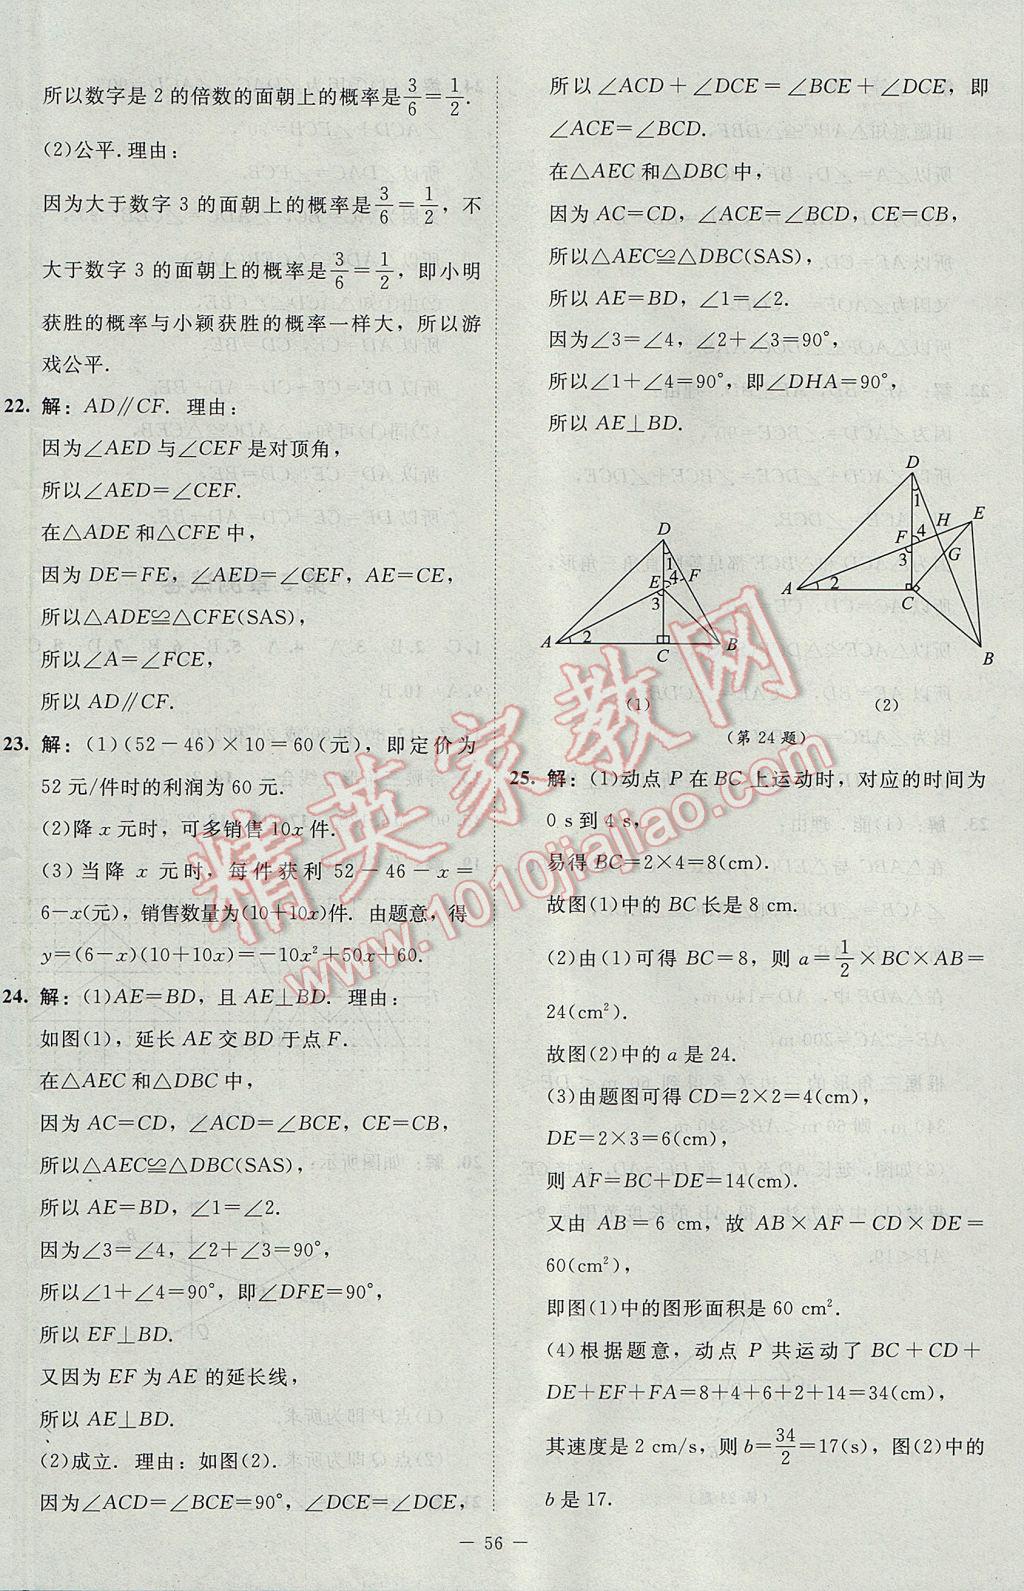 所以数字是 2 的倍数的面朝上的概率是3/6=1/2.
(2)公平.理由:
因为大于数字 3 的面朝上的概率是3/6=1/2，不
大于数字 3 的面朝上的概率是3/6=1/2，即小明
获胜的概率与小颖获胜的概率一样大，所以游
戏公平.
22. 解：AD∥CF. 理由:
因为∠AED 与∠CEF 是对顶角，
所以∠AED=∠CEF.
在△ADE 和△CFE 中，
因为 DE=FE，∠AED=∠CEF，AE=CE，
所以△ADE≌△CFE(SAS)，
所以∠A=∠FCE，
所以 AD∥CF.
23. 解：(1)(52-46)×10=60(元)，即定价为
52 元/件时的利润为 60 元.
(2)降 x 元时，可多销售 10x 件.
(3)当降 x 元时，每件获利 52-46-x=
6-x(元)，销售数量为(10+10x)件. 由题意，得
y=(6-x)(10+10x)=-10x²+50x+60.
24. 解：(1)AE=BD，且 AE⊥BD. 理由:
如图(1)，延长 AE 交 BD 于点 F.
在△AEC 和△DBC 中，
因为 AC=CD，∠ACD=∠BCE，CE=CB，
所以△AEC≌△DBC(SAS)，
所以 AE=BD，∠1=∠2.
因为∠3=∠4，∠2+∠3=90°，
所以∠1+∠4=90°，即∠DFE=90°，
所以 EF⊥BD.
又因为 EF 为 AE 的延长线，
所以 AE⊥BD.
(2)成立. 理由:如图(2).
因为∠ACD=∠BCE=90°，∠DCE=∠DCE，
所以 ∠ACD+∠DCE=∠BCE+∠DCE，即
∠ACE=∠BCD.
在△AEC 和△DBC 中，
因为 AC=CD，∠ACE=∠BCD，CE=CB，
所以△AEC≌△DBC(SAS)，
所以 AE=BD，∠1=∠2.
因为∠3=∠4，∠2+∠3=90°，
所以∠1+∠4=90°，即∠DHA=90°，
所以 AE⊥BD.
D
1
E
4
F
3
A
2
C
B
(1)
D
1
H
E
F
4
3
G
A
2
C
B
(2)
(第 24 题)
25. 解：(1)动点 P 在 BC 上运动时，对应的时间为
0 s到 4 s，
易得 BC=2×4=8(cm).
故图(1)中的 BC 长是 8 cm.
(2)由(1)可得 BC=8，则 a=1/2×BC×AB=
24(cm²).
故图(2)中的 a 是 24.
(3)由题图可得 CD=2×2=4(cm)，
DE=2×3=6(cm)，
则 AF=BC+DE=14(cm).
又由 AB=6 cm，故 AB×AF-CD×DE=
60(cm²)，
即图(1)中的图形面积是 60 cm².
(4)根据题意，动点 P 共运动了 BC+CD+
DE+EF+FA=8+4+6+2+14=34(cm)，
其速度是 2 cm/s，则 b=34/2=17(s)，图(2)中的
b 是 17.
精英家教网
www.1010jiajiao.com
— 56 —